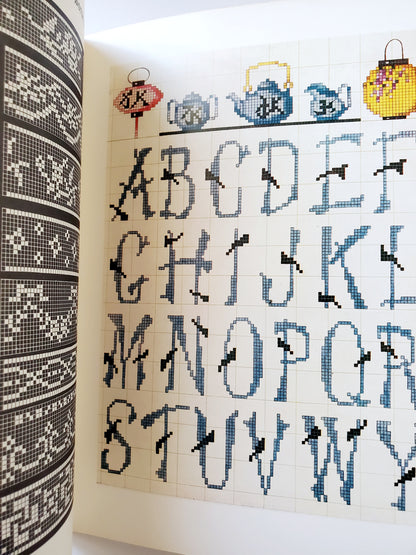 JK
A B C D E F
G H I J K L
M N O P Q R
S T U V W Y